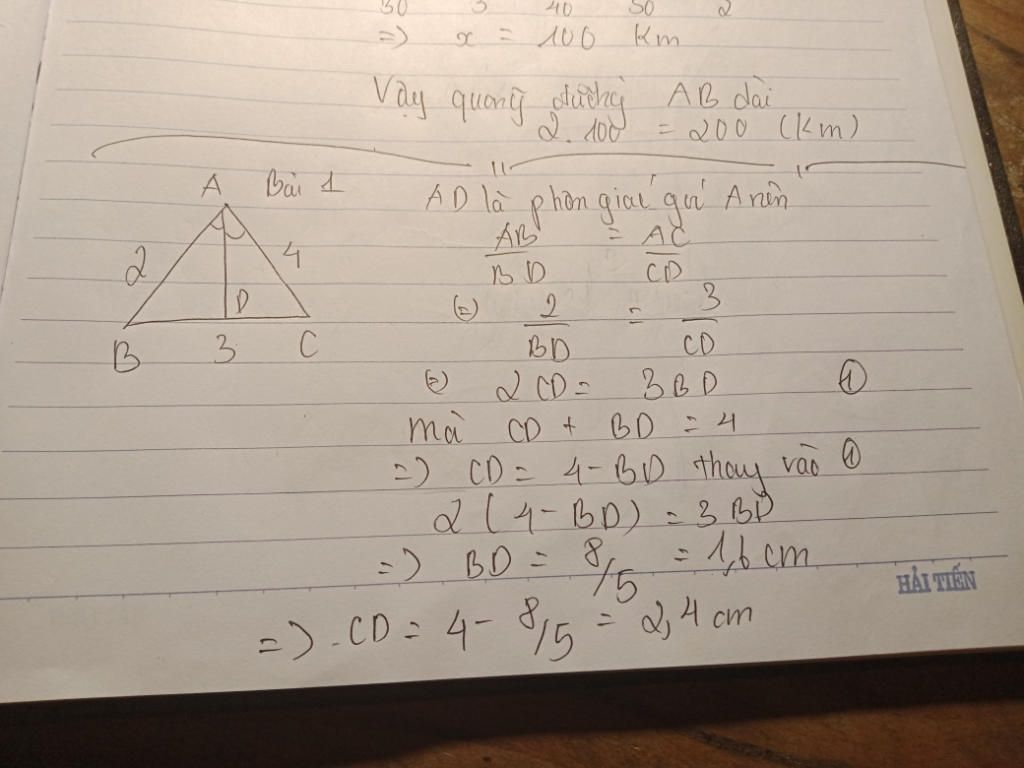 30 3 40 50 2
=> x = 100 Km
Vậy quãng đường AB dài
2.100 = 200 (Km)
Bài 1
A
2
4
D
B 3 C
AD là phân giác góc A nên
AB/BD = AC/CD
(=) 2/BD = 3/CD
(=) 2CD = 3BD ①
mà CD + BD = 4
=> CD = 4 - BD thay vào ①
2(4 - BD) = 3BD
=> BD = 8/5 = 1,6 cm
=> CD = 4 - 8/5 = 2,4 cm
HẢI TIẾN